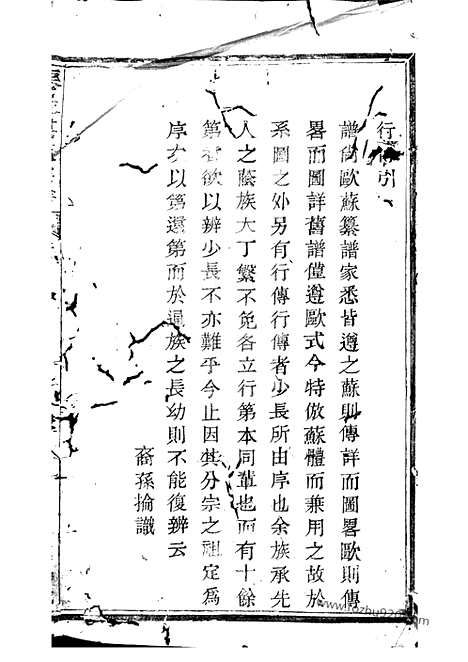 行傳引
譜尚歐蘇纂譜家悉皆遵之蘇則傳詳而圖畧歐則傳
畧而圖詳舊譜僅遵歐式今特倣蘇體而兼用之故於
系圖之外另有行傳行傳者少長所由序也余族承先
人之蔭族大丁繁不免各立行第本同輩也而有十餘
第者欲以辨少長不亦難乎今止因其分宗之祖定為
序次以第還第而於通族之長幼則不能復辨云
裔孫掄識